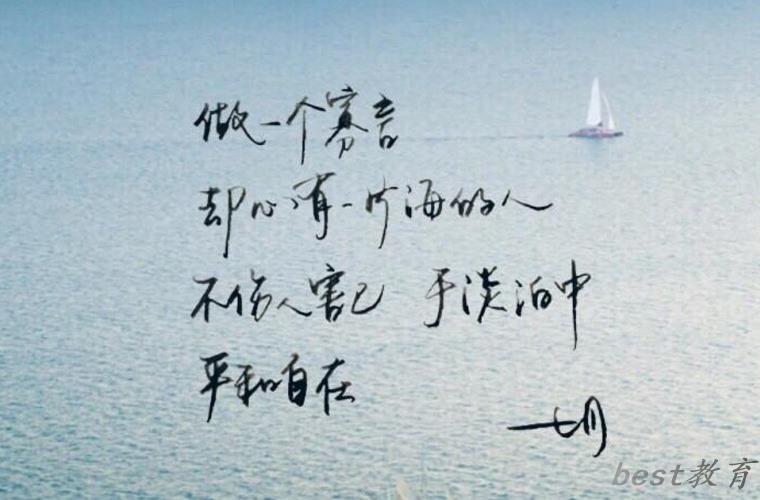 做一个寡言
却心有一片海的人
不伤人害己 于淡泊中
平和自在
七月
best教育